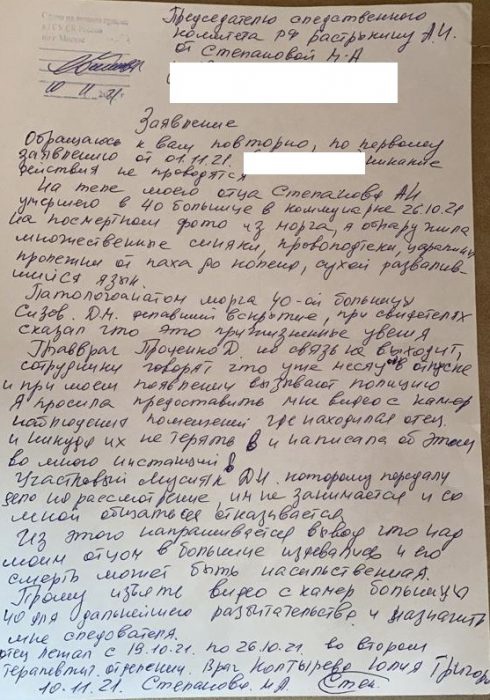 10 11 21
Председателю следственного
комитета РФ Бастрыкину А.И.
от Степановой М.А
Заявление
Обращаюсь к вам повторно, по первому
заявлению от 01.11.21. никакие
действия не проводятся
На теле моего отца Степанова АИ
умершего в 40 больнице в коммунарке 26.10.21
на посмертном фото из морга, я обнаружила
множественные синяки, кровоподтеки, царапины
пролежни от паха до колено, сухой развалив-
шийся язык.
Патологоанатом морга 40-ой больницы
Сизов. Д.Н. делавший вскрытие, при свидетелях
сказал что это прижизненные увечия
Главврач Проценко Д. на связь не выходит,
сотрудники говорят что уже месяц в отпуске
и при моем появлении вызывают полицию
Я просила предоставить мне видео с камер
наблюдения помещений где находился отец
и никуда их не терять и написала об этом
во много инстанций!
Участковый Мусияк Д.И. которому передали
дело на рассмотрение, им не занимается и со
мной общаться отказывается
Из этого напрашивается вывод что над
моим отцом в больнице издевались и его
смерть может быть насильственная.
Прошу изъять видео с камер больницы
40 для дальнейшего разбытательство и назначить
мне следователя.
отец лежал с 19.10.21. по 26.10.21. во втором
терапевтит. отделении. Врач Колтырева Юлия Григор
10.11.21. Степанова МА Степ.